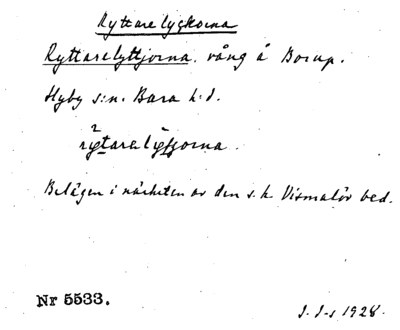 Ryttarelyckorna
Ryttarelyttjorna. vång å Borup.
Hyby s:n. Bara h:d.
Belägen i närheten av den s.k. Vismarlöv
Nr 5533.
J. J-s 1928.